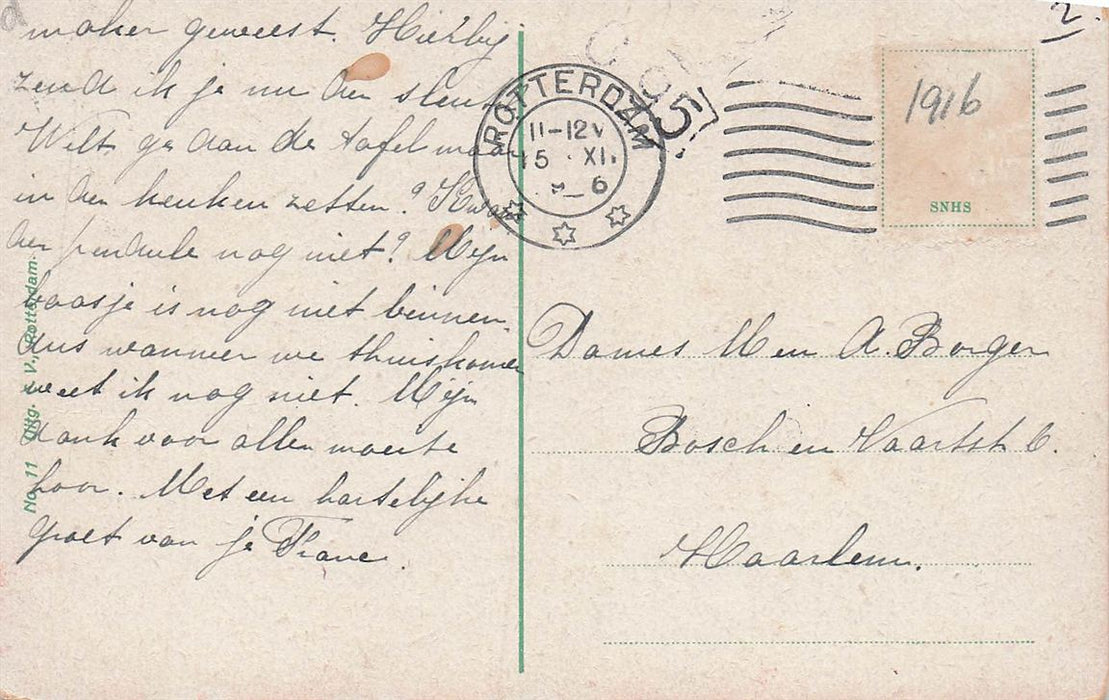 maker geweest. Hierbij
zend ik je nu den sleu
Wilt ge dan de tafel maar
in den keuken zetten? Kwam
den pendule nog niet? Mijn
baasje is nog niet binnen,
dus wanneer we thuiskomen
weet ik nog niet. Mijn
dank voor allen moeite
hoor. Met een hartelijke
groet van je
No. 11 Uitg. V., Rotterdam.
ROTTERDAM
11-12V
15 XI
6
5
2.
1916
SNHS
Dames M en A. Borger
Bosch en Vaartstr 6.
Haarlem.